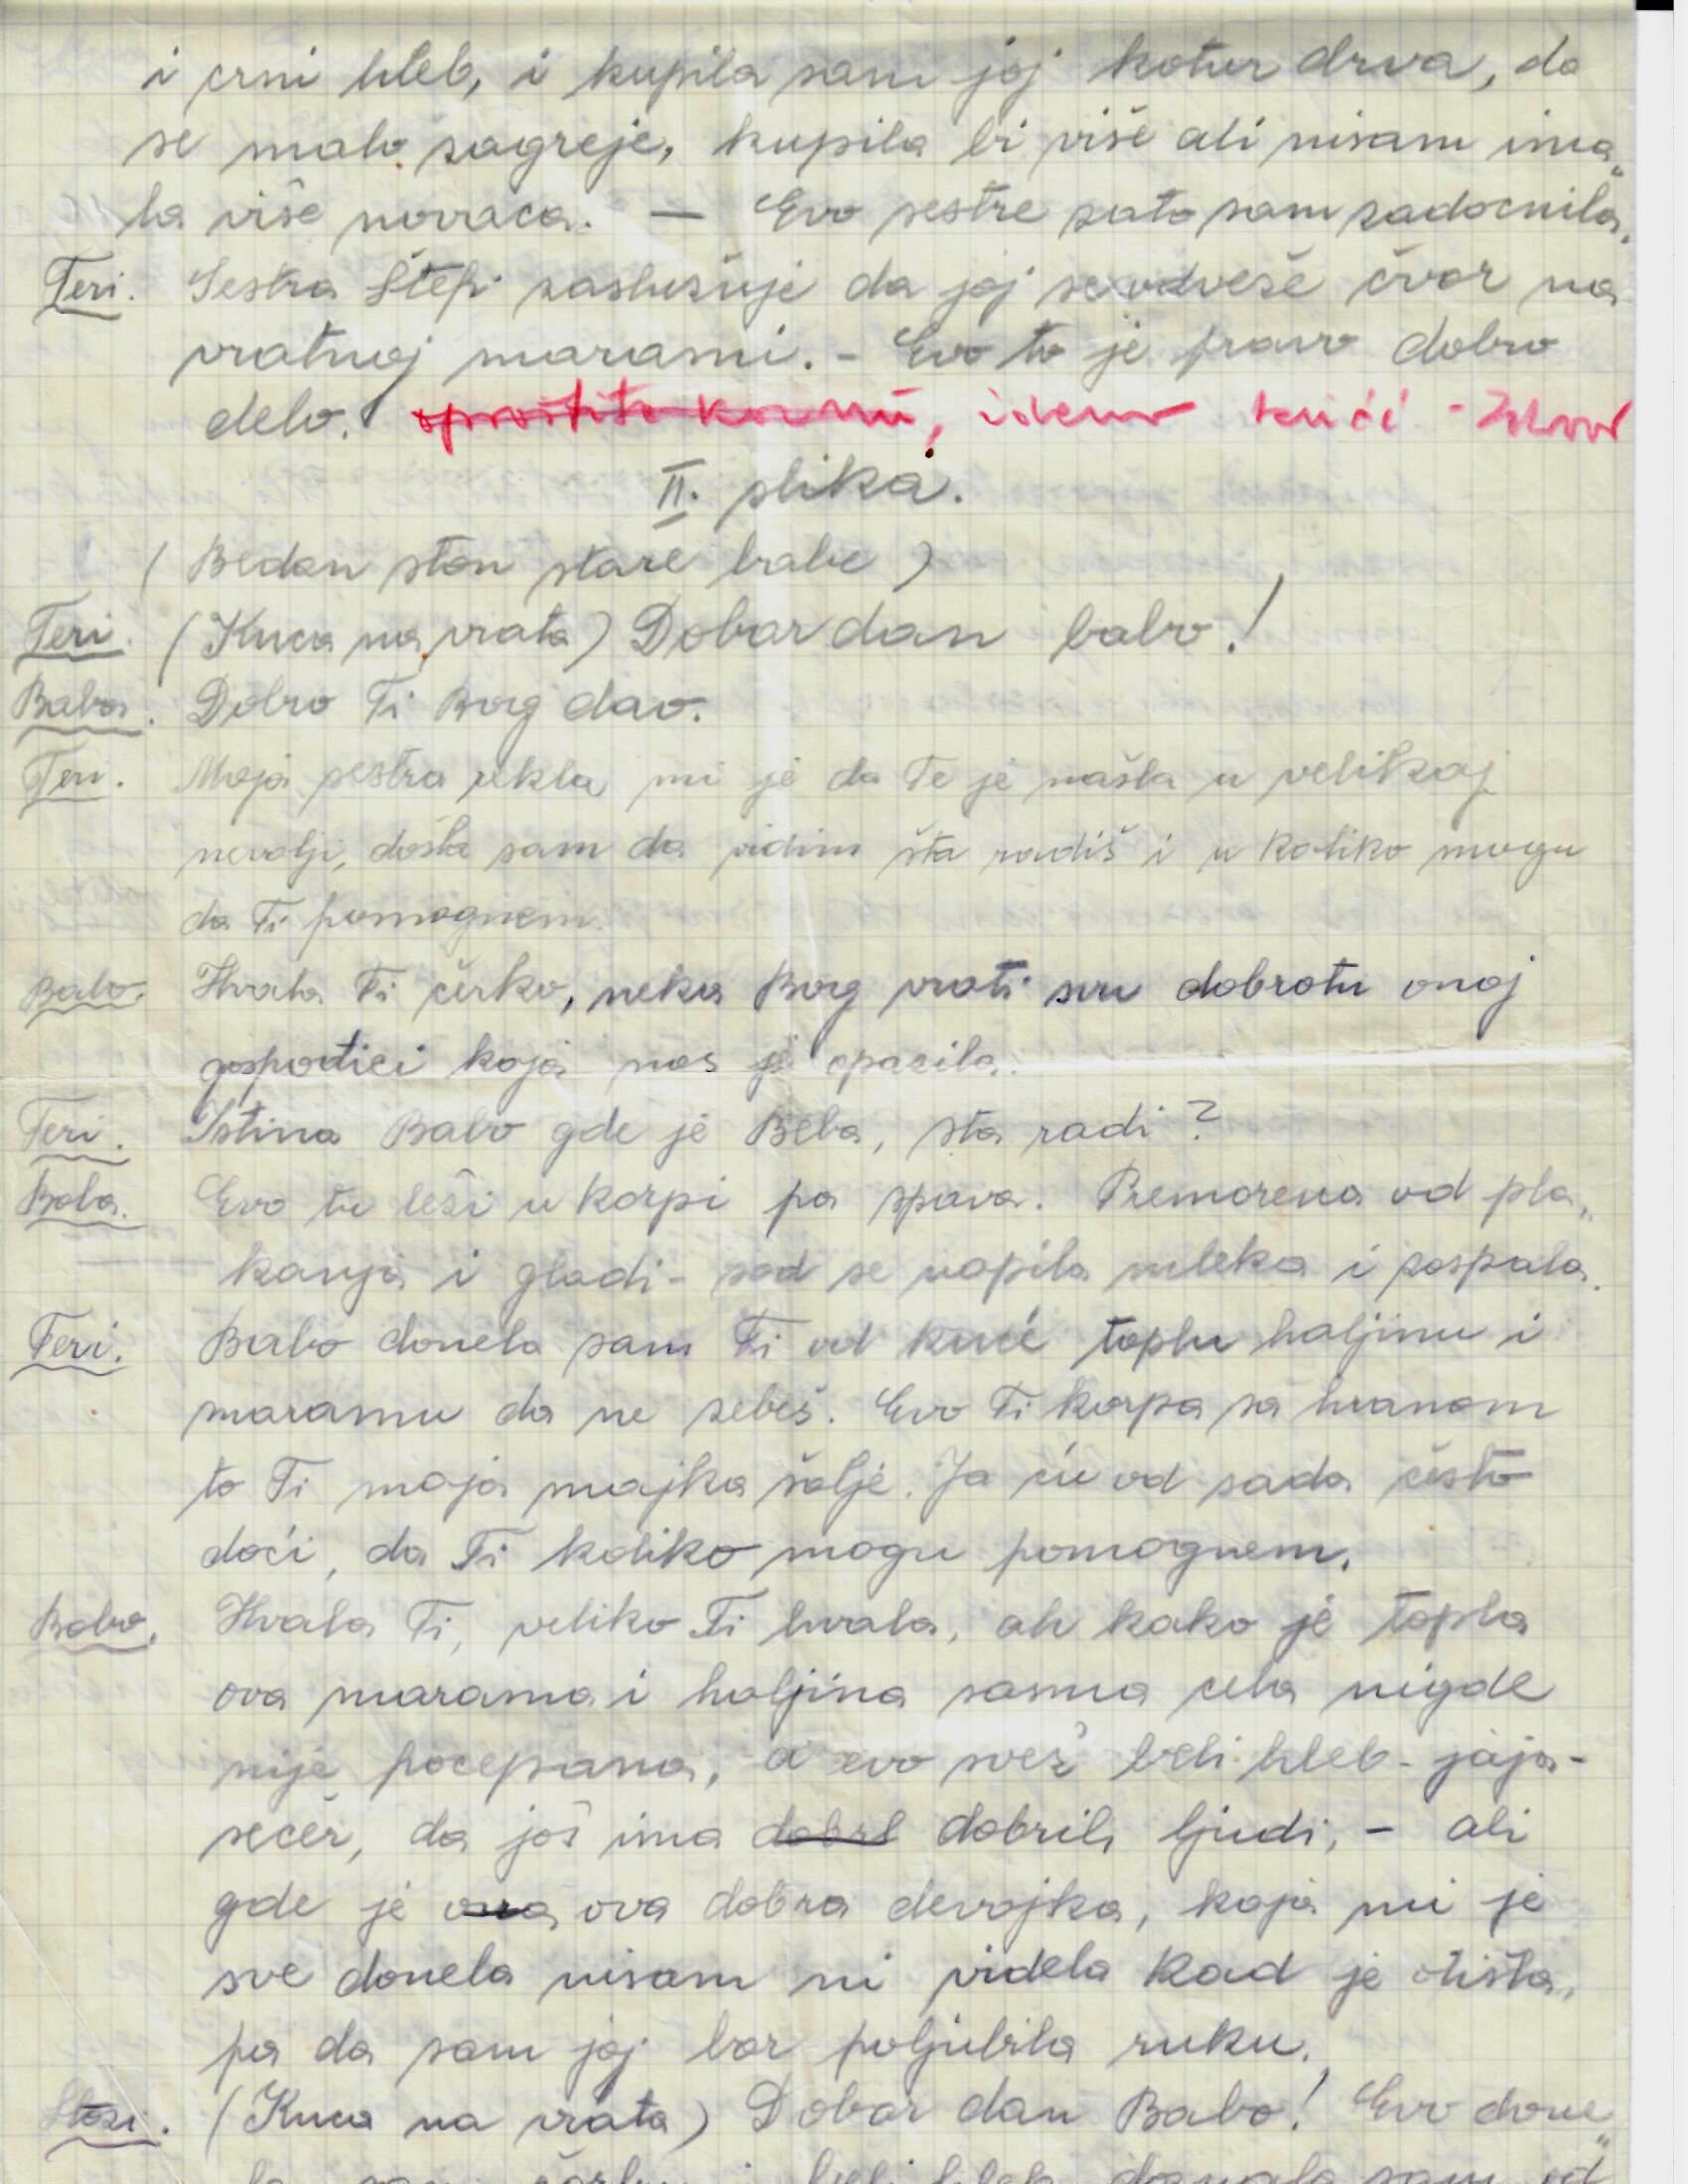 i crni hleb, i kupila sam joj kotur drva, da
se malo zagreje, kupila bi više ali nisam ima„
la više novaca. — Evo sestre zato sam zadocnila.
Teri. Sestra Štefi zaslužuje da joj se odveže čvor na
vratnoj marami. - Evo to je pravo dobro
delo. idemo kući - Zdravo
II. slika.
( Bedan stan stare babe )
Teri. (Kuca na vrata) Dobar dan babo!
Baba. Dobro Ti Bog dao.
Teri. Moja sestra rekla mi je da Te je našla u velikoj
nevolji, došla sam da vidim šta radiš i u koliko mogu
da Ti pomognem.
Baba. Hvala Ti ćerko, neka Bog vrati svu dobrotu onoj
gospođici koja nas je opazila.
Teri. Istina Babo gde je Beba, šta radi?
Baba. Evo tu leži u korpi pa spava. Premorena od pla„
kanja i gladi - sad se napila mleka i zaspala.
Teri. Babo donela sam Ti od kuće toplu haljinu i
maramu da ne zebeš. Evo Ti korpa sa hranom
to Ti moja majka šalje. Ja ću od sada često
doći, da Ti koliko mogu pomognem.
Baba. Hvala Ti, veliko Ti hvala, ah kako je topla
ova marama i haljina sasma cela nigde
nije pocepana, a evo svež beli hleb - jaja -
šećer, da još ima dobrl dobrih ljudi, - ali
gde je ona ova dobra devojka, koja mi je
sve donela nisam ni videla kad je otišla,
pa da sam joj bar poljubila ruku.
(Kuca na vrata) Dobar dan Babo! Evo done„
la sam čorbu i beli hleb sam od